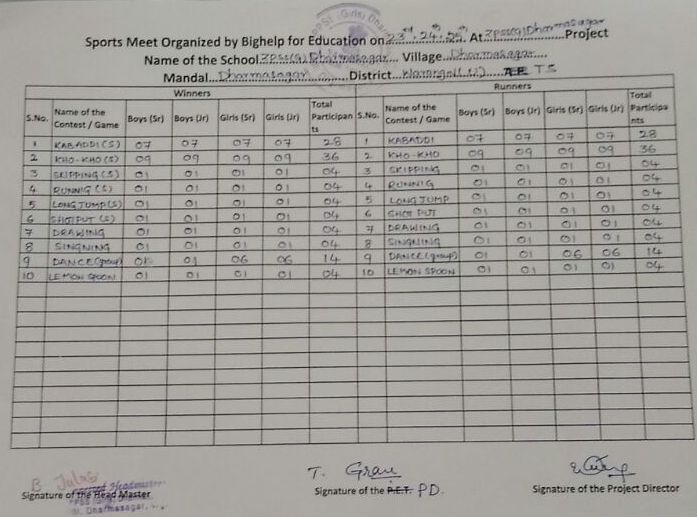 Sports Meet Organized by Bighelp for Education on 23rd, 24th, 25th At ZPSS(G) Dharmasagar Project
Name of the School ZPSS(G) Dharmasagar Village Dharmasagar
Mandal Dharmasagar District Warangal(U) A.P. T S
Winners Runners
S.No. Name of the Contest / Game Boys (Sr) Boys (Jr) Girls (Sr) Girls (Jr) Total Participants S.No. Name of the Contest / Game Boys (Sr) Boys (Jr) Girls (Sr) Girls (Jr) Total Participants
1 KABADDI (S) 07 07 07 07 28 1 KABADDI 07 07 07 07 28
2 KHO-KHO (S) 09 09 09 09 36 2 KHO-KHO 09 09 09 09 36
3 SKIPPING (S) 01 01 01 01 04 3 SKIPPING 01 01 01 01 04
4 RUNNIG (S) 01 01 01 01 04 4 RUNNIG 01 01 01 01 04
5 LONG JUMP (S) 01 01 01 01 04 5 LONG JUMP 01 01 01 01 04
6 SHOT PUT (S) 01 01 01 01 04 6 SHOT PUT 01 01 01 01 04
7 DRAWING 01 01 01 01 04 7 DRAWING 01 01 01 01 04
8 SINGNING 01 01 01 01 04 8 SINGNING 01 01 01 01 04
9 DANCE (group) 01 01 06 06 14 9 DANCE (group) 01 01 06 06 14
10 LEMON SPOON 01 01 01 01 04 10 LEMON SPOON 01 01 01 01 04
B. T.
Signature of the Head Master Signature of the P.E.T. PD. Signature of the Project Director
Headmaster
Dharmasagar